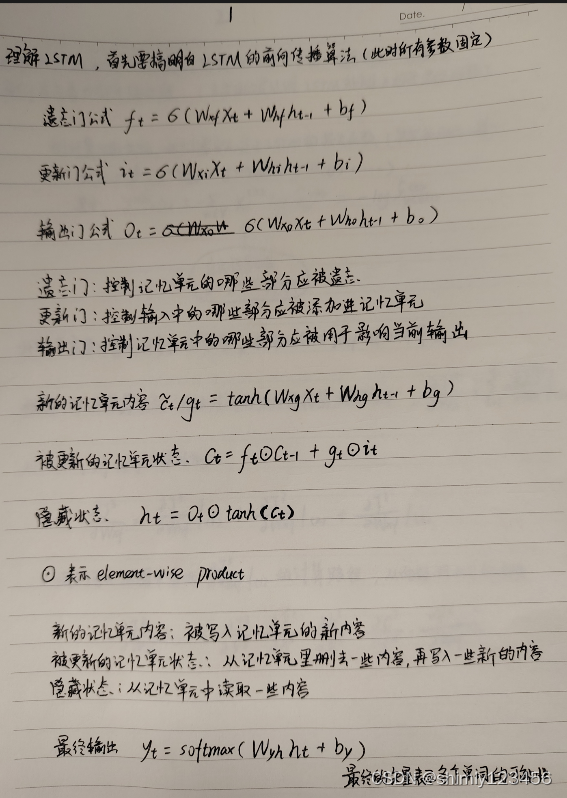 1
Date.
理解LSTM，首先要搞明白LSTM的前向传播算法(此时所有参数固定)
遗忘门公式 ft = σ(Wxf Xt + Whf ht-1 + bf)
更新门公式 it = σ(Wxi Xt + Whi ht-1 + bi)
输出门公式 Ot = σ(Wxo Xt + Who ht-1 + bo)
遗忘门：控制记忆单元的哪些部分应被遗忘.
更新门：控制输入中的哪些部分应被添加进记忆单元
输出门：控制记忆单元中的哪些部分应被用于影响当前输出
新的记忆单元内容 c̃t/gt = tanh(Wxg Xt + Whg ht-1 + bg)
被更新的记忆单元状态. Ct = ft⊙Ct-1 + gt⊙it
隐藏状态. ht = Ot⊙tanh(Ct)
⊙ 表示 element-wise product
新的记忆单元内容：被写入记忆单元的新内容
被更新的记忆单元状态.：从记忆单元里删去一些内容,再写入一些新的内容
隐藏状态.：从记忆单元中读取一些内容
最终输出 yt = softmax(Wyh ht + by)
最终的向量表示各个单词的
@shimly123456